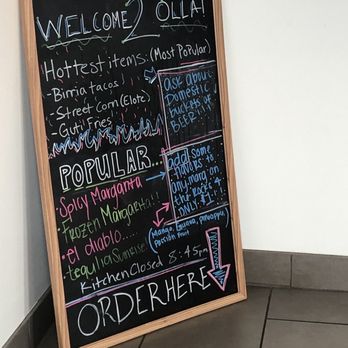 WELCOME 2 OLLA!
Hottest items: (Most Popular)
- Birria tacos
- Street Corn (Elote)
- Guti Fries
ask about
Domestic
buckets of
BEER!
POPULAR...
• Spicy Margarita
• Frozen Margarita!!
• el diablo....
• tequila Sunrise
add some
flavors to
any marg on
the rocks 4
ONLY $1
(Mango, Guava, pineapple,
Passion fruit)
Kitchen Closed 8:45pm
ORDER HERE